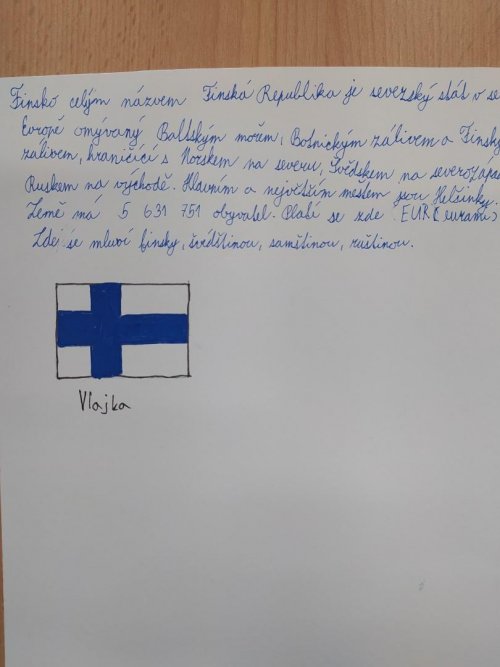 Finsko celým názvem Finská Republika je severský stát v se
Evropě omývaný Baltským mořem, Botnickým zálivem a Finský
zálivem, hraničící s Norskem na severu, Švédskem na severozápa
Ruskem na východě. Hlavním a největším mestem jsou Helsinky.
Země má 5 631 751 obyvatel. Platí se zde EUR (eurami)
Zde se mluví finsky, švédštinou, samštinou, ruštinou.
Vlajka